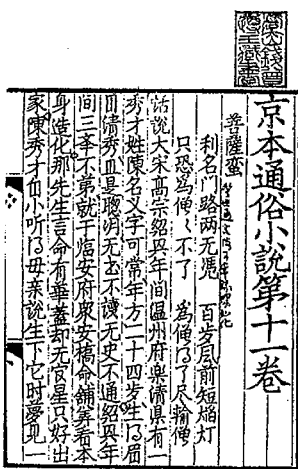 京本通俗小說第十一卷
菩薩蠻
利名門路兩无憑　百岁風前短焰灯
只恐為僧〻不了　為僧得了尽輸僧
話說大宋高宗紹兴年間温州府樂清縣有一
秀才姓陳名义字可常年方二十四岁生得眉
目清秀且是聡明无书不讀无史不通紹兴年
間三举不第就于临安府衆安橋命鋪筭看本
身造化那先生言命有華盖却无官星只好出
家陳秀才自小听得母親說生下它时夢見一